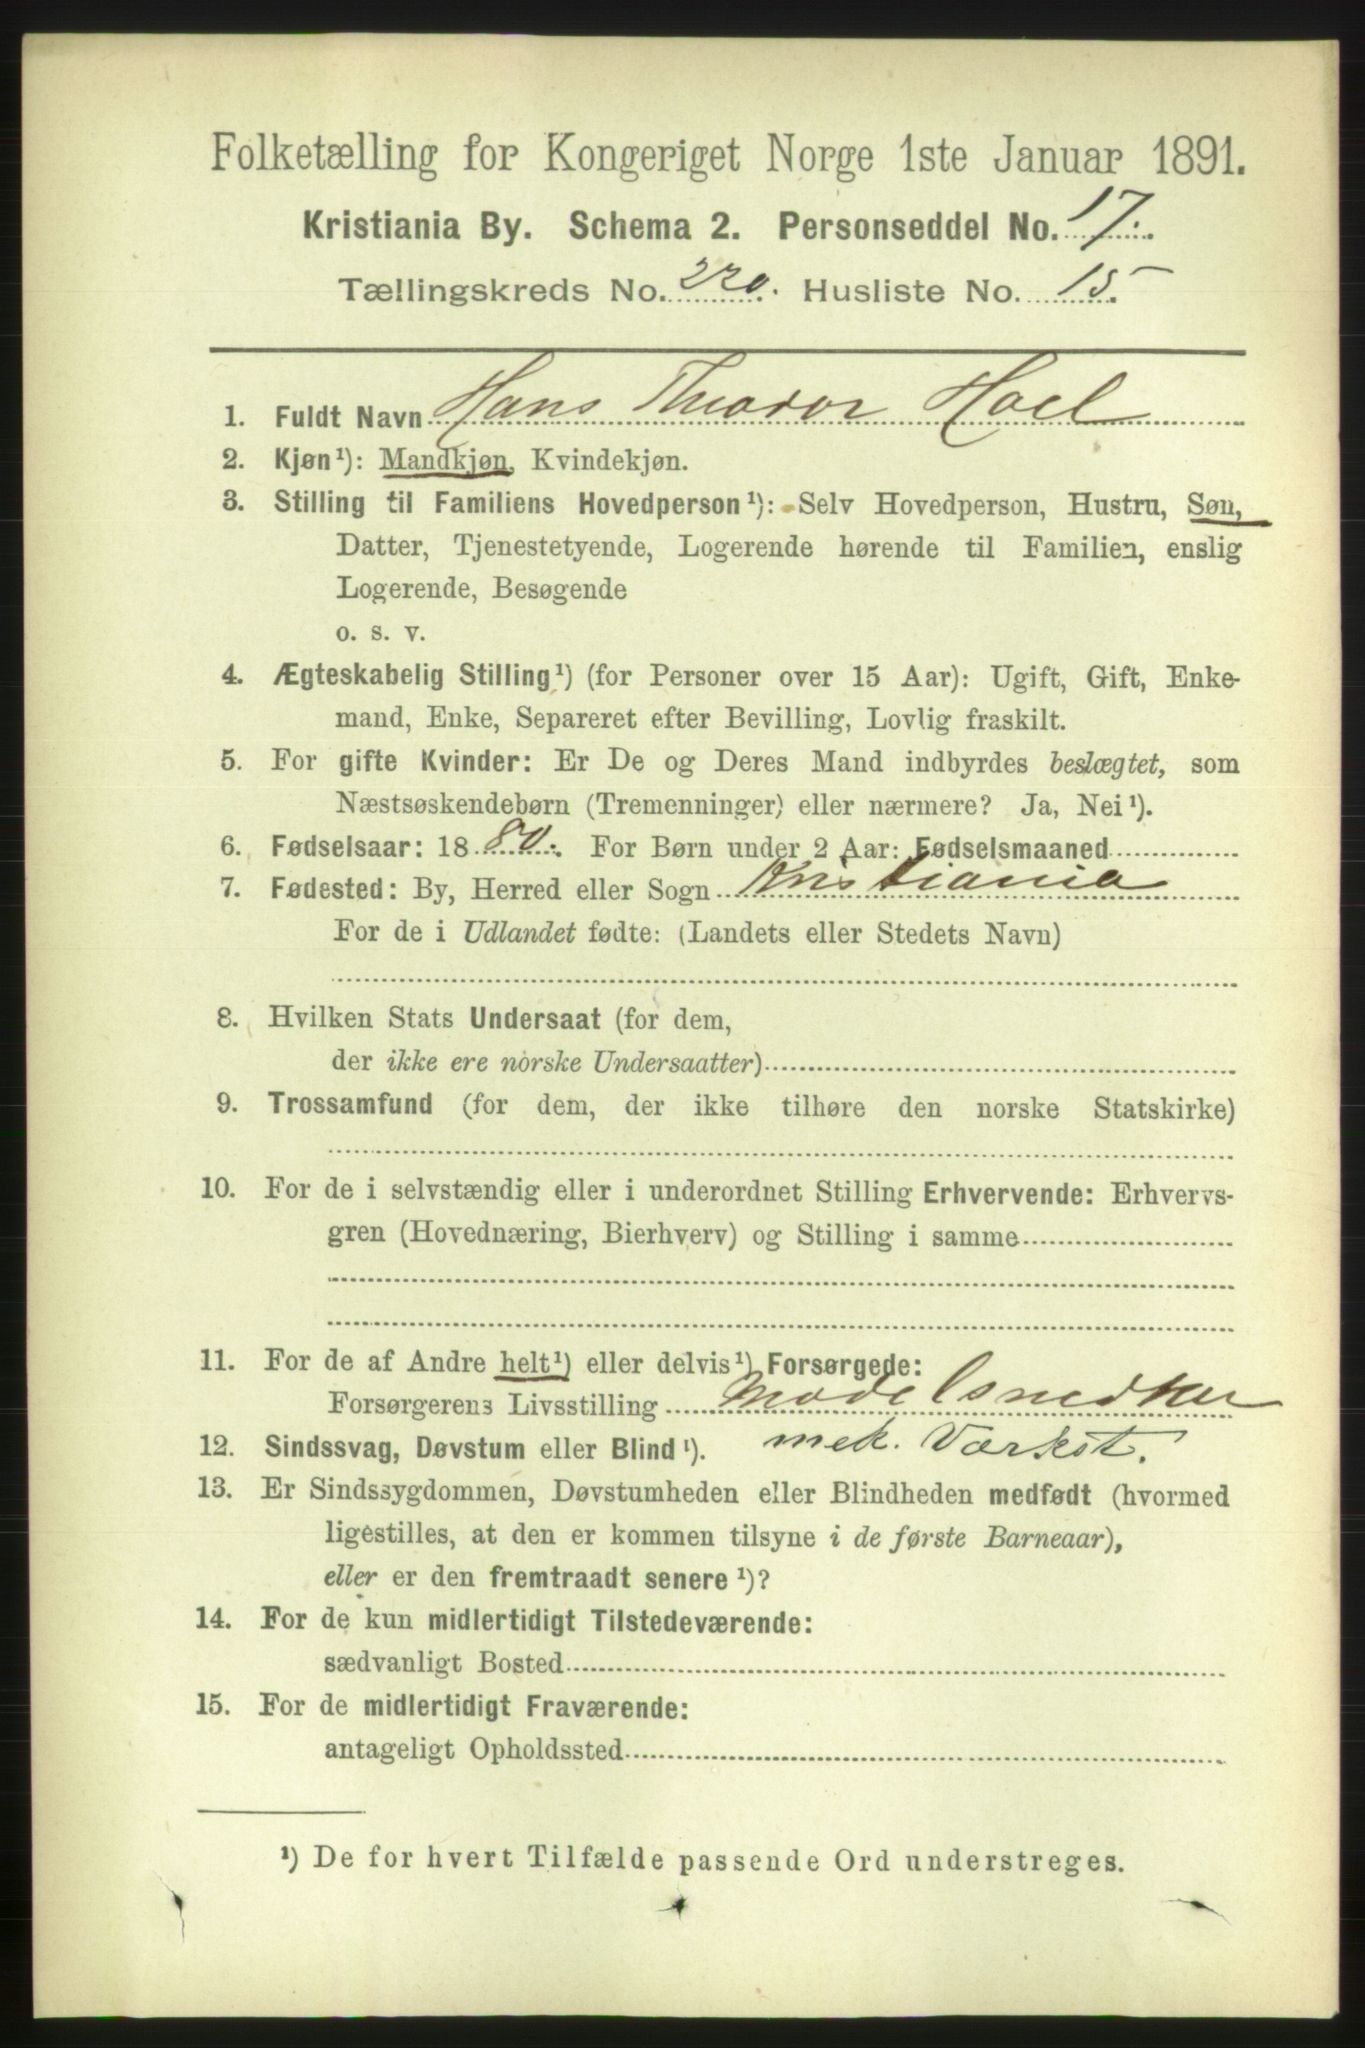 Folketælling for Kongeriget Norge 1ste Januar 1891.
Kristiania By. Schema 2. Personseddel No. 17.
Tællingskreds No. 220. Husliste No. 15.
1. Fuldt Navn Hans Theodor Hoel
2. Kjøn¹): Mandkjøn, Kvindekjøn.
3. Stilling til Familiens Hovedperson¹): Selv Hovedperson, Hustru, Søn,
Datter, Tjenestetyende, Logerende hørende til Familien, enslig
Logerende, Besøgende
o. s. v.
4. Ægteskabelig Stilling¹) (for Personer over 15 Aar): Ugift, Gift, Enke-
mand, Enke, Separeret efter Bevilling, Lovlig fraskilt.
5. For gifte Kvinder: Er De og Deres Mand indbyrdes beslægtet, som
Næstsøskendebørn (Tremenninger) eller nærmere? Ja, Nei¹).
6. Fødselsaar: 1880. For Børn under 2 Aar: Fødselsmaaned
7. Fødested: By, Herred eller Sogn Kristiania
For de i Udlandet fødte: (Landets eller Stedets Navn)
8. Hvilken Stats Undersaat (for dem,
der ikke ere norske Undersaatter)
9. Trossamfund (for dem, der ikke tilhøre den norske Statskirke)
10. For de i selvstændig eller i underordnet Stilling Erhvervende: Erhvervs-
gren (Hovednæring, Bierhverv) og Stilling i samme
11. For de af Andre helt¹) eller delvis¹) Forsørgede:
Forsørgerens Livsstilling Modelsnedker
12. Sindssvag, Døvstum eller Blind¹). mek. Værkst.
13. Er Sindssygdommen, Døvstumheden eller Blindheden medfødt (hvormed
ligestilles, at den er kommen tilsyne i de første Barneaar),
eller er den fremtraadt senere¹)?
14. For de kun midlertidigt Tilstedeværende:
sædvanligt Bosted
15. For de midlertidigt Fraværende:
antageligt Opholdssted
¹) De for hvert Tilfælde passende Ord understreges.